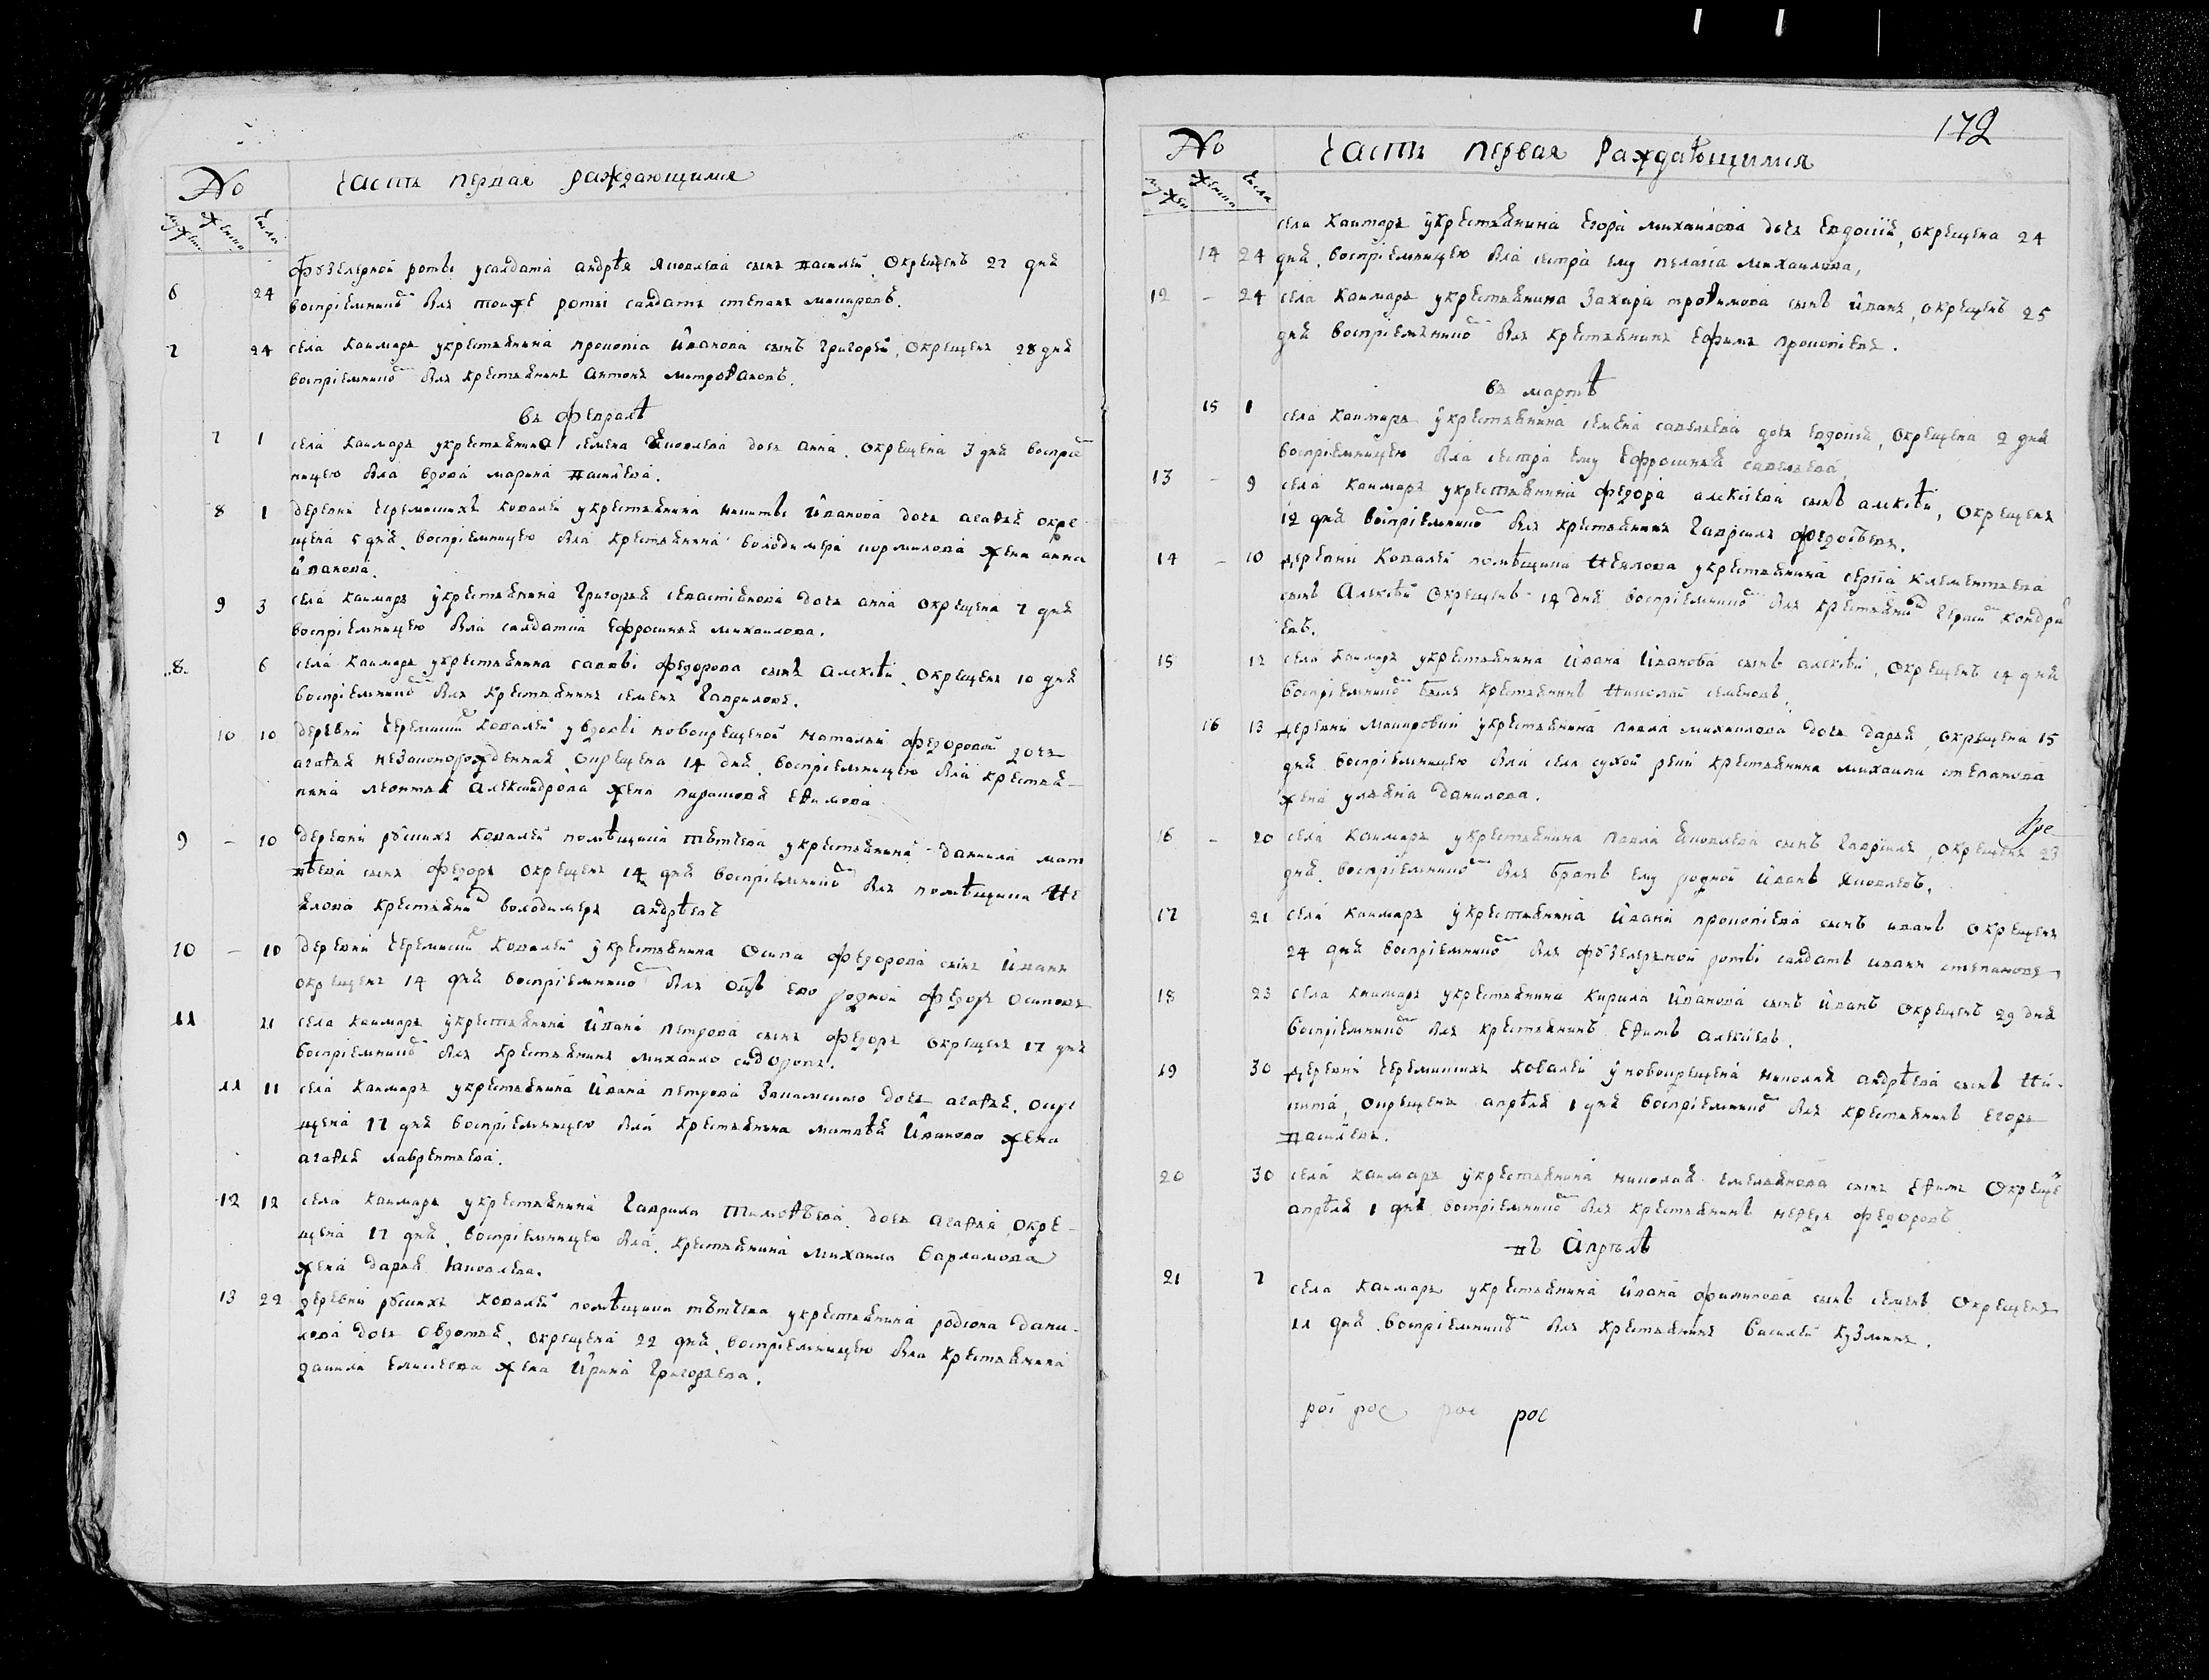 No часть первая раждающимся
мужеска женска числа
фѫзелерной роты у салдата андрѣя яковлева сынъ василей окрещенъ 27 дня
6 24 воспрiемникомъ былъ тоиже роты салдатъ степанъ макаровъ.
7 24 села каимаръ у крестьянина прокопiа иванова сынъ григорей, окрещенъ 28 дня
воспрiемникомъ былъ крестьянинъ антонъ митроѳановъ.
въ февралѣ
7 1 села каимаръ у крестьянина семена яковлева дочь анна. окрещена 3 дня воспрiем
ницею была вдова марина васильева.
8 1 деревни черемискихъ ковалей у крестьянина никиты иванова дочь агаѳья окре
щена 5 дня. воспрiемницею была крестьянина володимера кормилова жена анна
иванова.
9 3 села каимаръ у крестьянина григорья севастiянова дочь анна окрещена 7 дня
воспрiемницею была салдатка ефросинья михаилова.
8 6 села каимаръ у крестьянина саввы федорова сынъ алексѣй. окрещенъ 10 дня
воспрiемникомъ былъ крестьянинъ семенъ гавриловъ.
10 10 деревни черемискихъ ковалей у вдовы новокрещеной натальи федоровой дочь
агаѳья незаконорожденная. окрещена 14 дня. воспрiемницею была крестья-
нина леонтья александрова жена парасковья еѳимова
9 – 10 деревни руских ковалей помѣщика тютчева у крестьянина данила мат
вѣева сынъ федоръ окрещенъ 14 дня воспрiемникомъ былъ помѣщика не
елова крестьянинъ володимеръ андрѣевъ
10 – 10 деревни черемискихъ ковалей у крестьянина осипа федорова сынъ иванъ
окрещенъ 14 дня воспрiемникомъ былъ сынъ ево родной федоръ осиповъ
11 11 села каимаръ у крестьянина ивана петрова сынъ федоръ окрещенъ 17 дня
воспрiемникомъ былъ крестьянинъ михаило сидоровъ.
11 11 села каимаръ у крестьянина ивана петрова дочь агаѳья. окре
щена 17 дня воспрiемницею была крестьянина матвѣя иванова жена
агаѳья лаврентьева.
12 12 села каимаръ у крестьянина гаврила тимоѳѣева. дочь агаѳья, окре-
щена 17 дня. воспрiемницею была крестьянина михаила варламова
жена дарья iаковлева.
13 22 деревни руских ковалей помѣщика тютчева у крестьянина родiона дани-
лова дочь овдотья. окрещена 22 дня. воспрiемницею была крестьянина
данила елисеева жена ирина григорьева.
172
No часть первая раждающимся
мужеска женска числа
села каимаръ у крестьянина егора михаилова дочь евдокiя, окрещена 24
14 24 дня. воспрiемницею была сестра ему пелагiа михаилова,
12 – 24 села каимаръ у крестьянина захара троѳимова сынъ иванъ, окрещенъ 25
дня воспрiемникомъ былъ крестьянинъ ефимъ прокопiевъ.
въ мартѣ
15 1 села каимаръ у крестьянина семена савельева дочь евдокiя, окрещена 2 дня
воспрiемницею была сестра ему ефросинья савельева
13 – 9 села каимаръ у крестьянина федора алексѣева сынъ алексѣй, окрещенъ
12 дня воспрiемникомъ былъ крестьянинъ гаврiилъ федосѣевъ.
14 – 10 деревни ковалей помѣщика неелова у крестьянина сергiа климентьева
сынъ алексѣй окрещенъ 14 дня воспрiемникомъ былъ крестьянинъ герасим кондрат
евъ.
15 12 села каимаръ у крестьянина ивана иванова сынъ алексѣй, окрещенъ 14 дня
воспрiемникомъ былъ крестьянинъ николай семеновъ,
16 13 деревни макаровки у крестьянина павла михаилова дочь дарья, окрещена 15
дня воспрiемницею была села сухой реки крестьянина михаила степанова
жена ульяна данилова.
кре
16 – 20 села каимаръ у крестьянина павла яковлева сынъ гаврiилъ, окрещенъ 23
дня. воспрiемникомъ былъ братъ ему родной иванъ яковлевъ.
17 21 села каимаръ у крестьянина ивана прокопiева сынъ иванъ окрещенъ
24 дня воспрiемникомъ былъ фузелерной роты салдатъ иванъ степановъ
18 23 села каимаръ у крестьянина кирила иванова сынъ иванъ окрещенъ 29 дня
воспрiемникомъ былъ крестьянинъ еѳимъ алексiевъ.
19 30 деревни черемиских ковалей у новокрещена николая андрѣева сынъ ни-
кита, окрещенъ апрѣля 1 дня воспрiемникомъ былъ крестьянинъ егоръ
васильевъ.
20 30 села каимаръ у крестьянина николая емельянова сынъ еѳимъ окрещенъ
апрѣля 1 дня воспрiемникомъ былъ крестьянинъ федоровъ
въ апрѣлѣ
21 7 села каимаръ у крестьянина ивана филипова сынъ семенъ окрещенъ
11 дня. воспрiемникомъ былъ крестьянинъ василей кузминъ.
рос рос рос рос